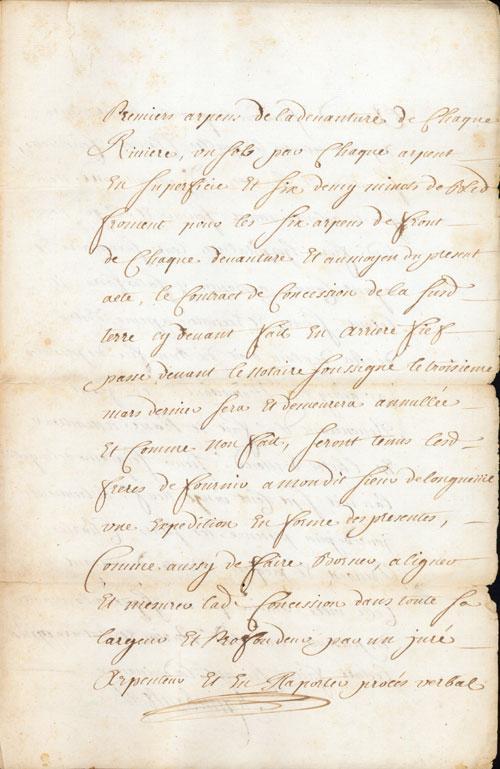 Premiers arpens de la devanture de Chaque
Riviere, un sols par Chaque arpent
En superficie Et six demy minots de Bled
froment pour les six arpens de front
de Chaque devanture Et au moyen du present
acte, le Contract de Concession de la susd
terre cy devant fait En arriere fief
passé devant le Notaire soussigné le troisieme
mars dernier sera Et demeurera annullée
Et Comme Non fait, seront tenus lesd
freres de fournir a mondit sieur de longueuil
une Expedition En forme des presentes,
Comme aussy de faire Borner, aligner
Et mesurer lad Concession dans toute sa
largeur Et Profondeur par un juré
Arpenteur Et En Raporter procés verbal